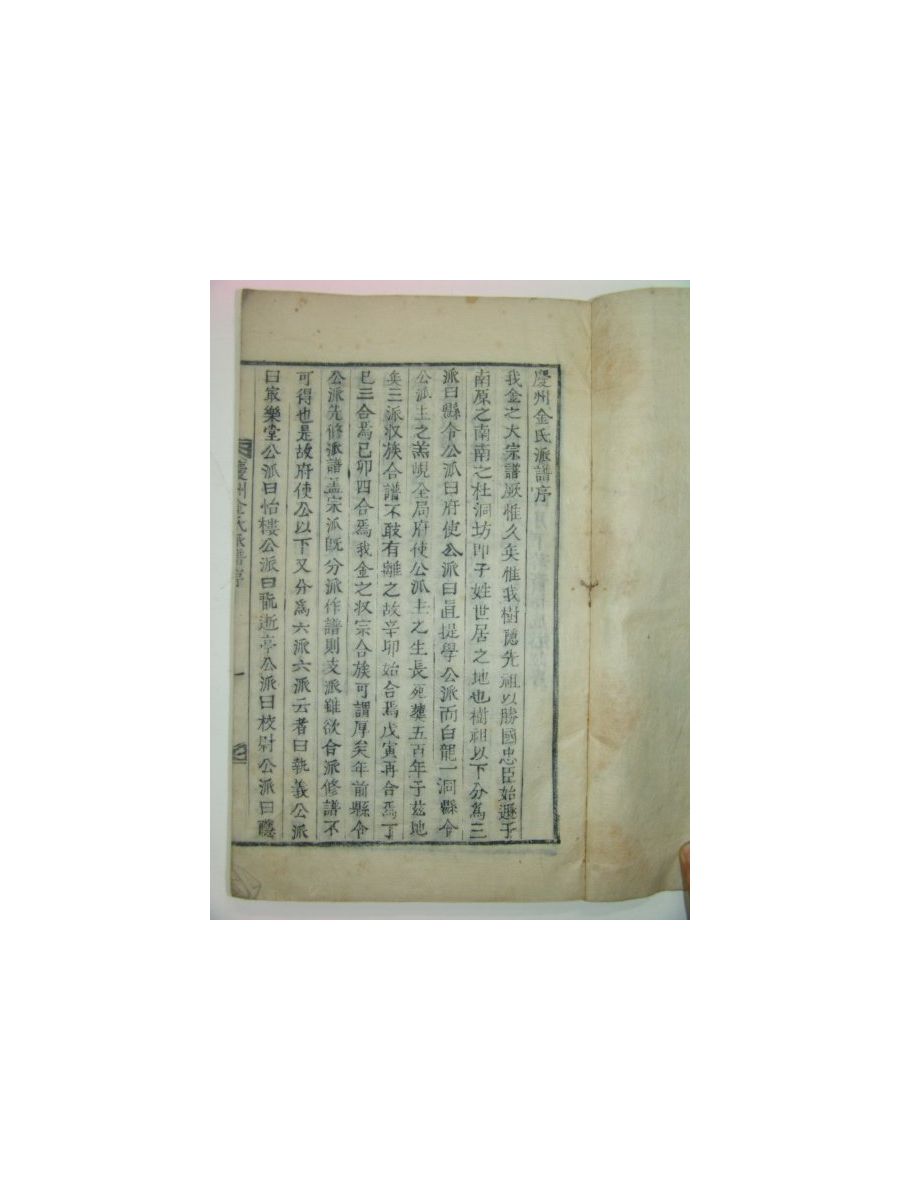 慶州金氏派譜序
我金之大宗譜厥惟久矣惟我樹隱先祖以勝國忠臣始遯于
南原之南南之杜洞坊即子姓世居之地也樹祖以下分為三
派曰縣令公派曰府使公派曰直提學公派而白龍一洞縣令
公派主之羔峴全局府使公派主之生長死葬五百年于玆地
矣三派收族合譜不敢有離之故辛卯始合焉戊寅再合焉丁
巳三合焉己卯四合焉我金之収宗合族可謂厚矣年前縣令
公派先修派譜盖宗派既分派作譜則支派雖欲合派修譜不
可得也是故府使公以下又分為六派六派云者曰執義公派
曰最樂堂公派曰怡樓公派曰龍逝亭公派曰校尉公派曰
慶州金氏派譜序
一